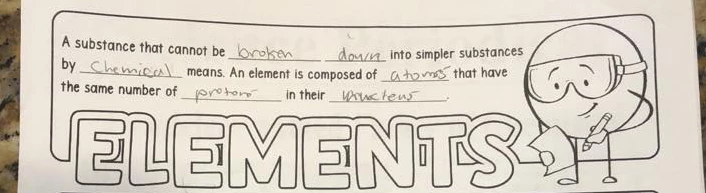 A substance that cannot be broken down into simpler substances
by Chemical means. An element is composed of atoms that have
the same number of protons in their
ELEMENTS